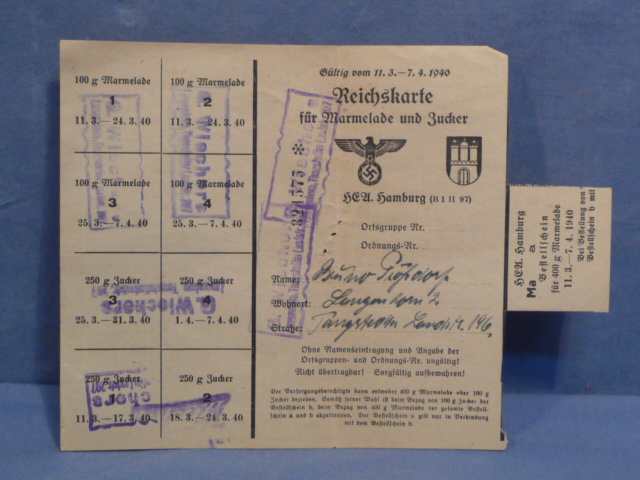 100 g Marmelade
1
11. 3.— 24. 3. 40
100 g Marmelade
2
11. 3.— 24. 3. 40
100 g Marmelade
3
25. 3.— 7. 4. 40
100 g Marmelade
4
25. 3.— 7. 4. 40
250 g Zucker
3
25. 3.— 31. 3. 40
250 g Zucker
4
1. 4.— 7. 4. 40
250 g Zucker
1
11. 3.— 17. 3. 40
250 g Zucker
2
18. 3.— 24. 3. 40
G. Wiechers
Gültig vom 11. 3.— 7. 4. 1940
Reichskarte
für Marmelade und Zucker
HEA. Hamburg (B I II 97)
Ortsgruppe Nr.
Ordnungs-Nr.
Name: Bruno
Wohnort: Langenhorn 2
Straße: Tangstedter Landstr. 146
Ohne Namenseintragung und Angabe der
Ortsgruppen- und Ordnungs-Nr. ungültig!
Nicht übertragbar! Sorgfältig aufbewahren!
Der Versorgungsberechtigte kann entweder 400 g Marmelade oder 160 g
Zucker beziehen. Gemäß seiner Wahl ist beim Bezug von 160 g Zucker der
Bestellschein b, beim Bezug von 400 g Marmelade der gesamte Bestell-
schein a und b abzutrennen. Der Bestellschein a gilt nur in Verbindung
mit dem Bestellschein b.
321575 *
HEA. Hamburg
Ma a
Bestellschein
für 400 g Marmelade
11. 3.— 7. 4. 1940
Bei Bestellung von
Bestellschein b mit